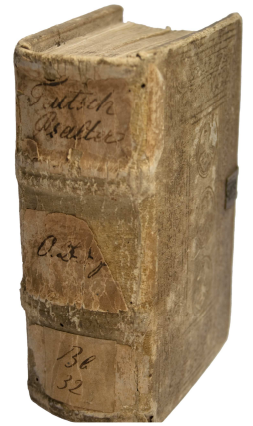 Teutsch
Psalter
Bb
32